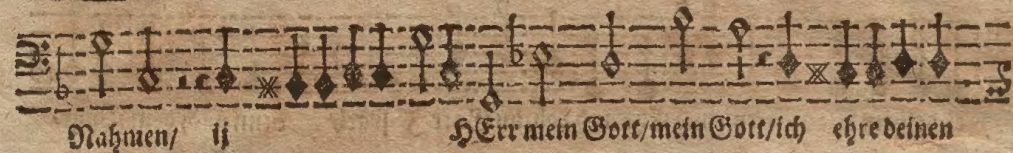 Nahmen/ ij HErr mein Gott/mein Gott/ich ehre deinen